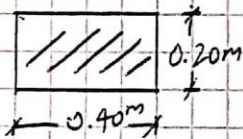 0.20m
0.40m